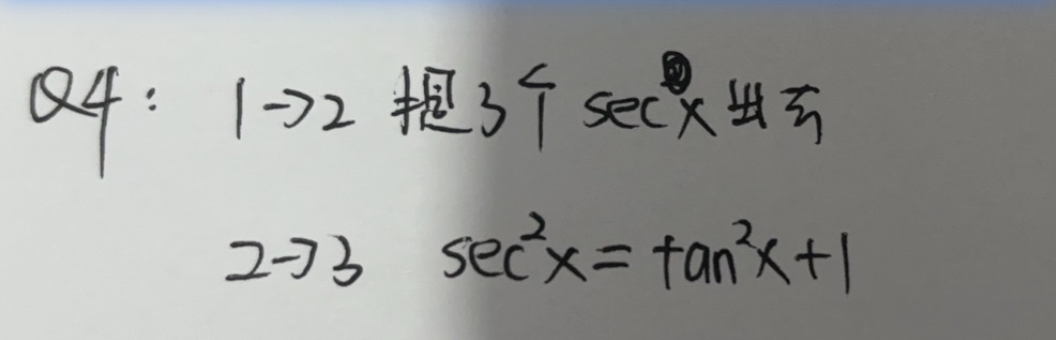 Q4: 1→2 提3个 sec x 出去
2→3 sec²x = tan²x+1